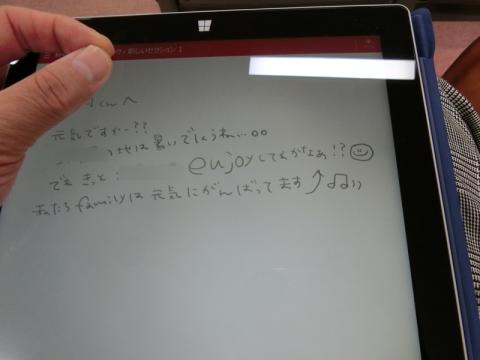 新しいセクション 1
くんへ
元気ですかー??
地は暑いでしょうねぃ。。
でも きっと enjoyしてるかなぁ!?
私たちfamilyは 元気にがんばってます